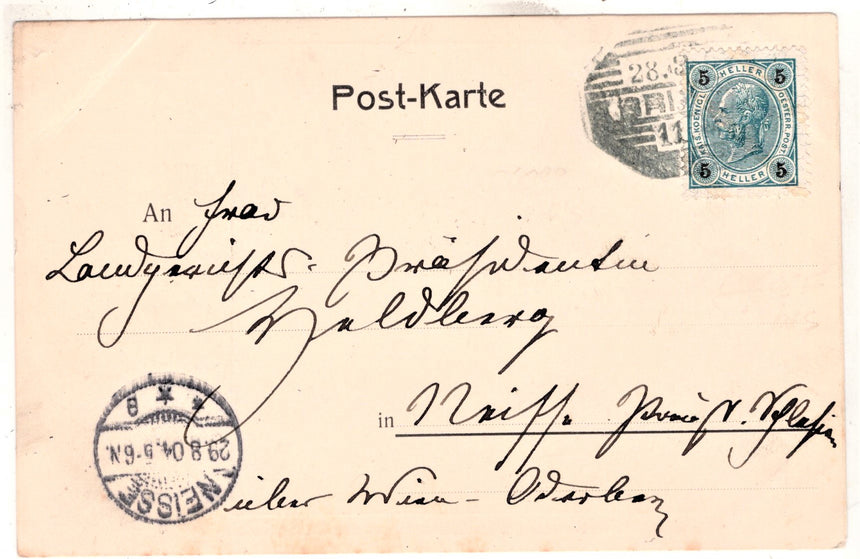 Post-Karte
28.8
11
5 HELLER 5
KAIS. KOENIGL. OESTERR. POST.
5 HELLER 5
An Frau
Landgerichts-Präsidentin
Heldberg
in Neisse Preuß. Schlesien
über Wien - Oderberg
NEISSE
29.8.04.5-6N.
* 8 *